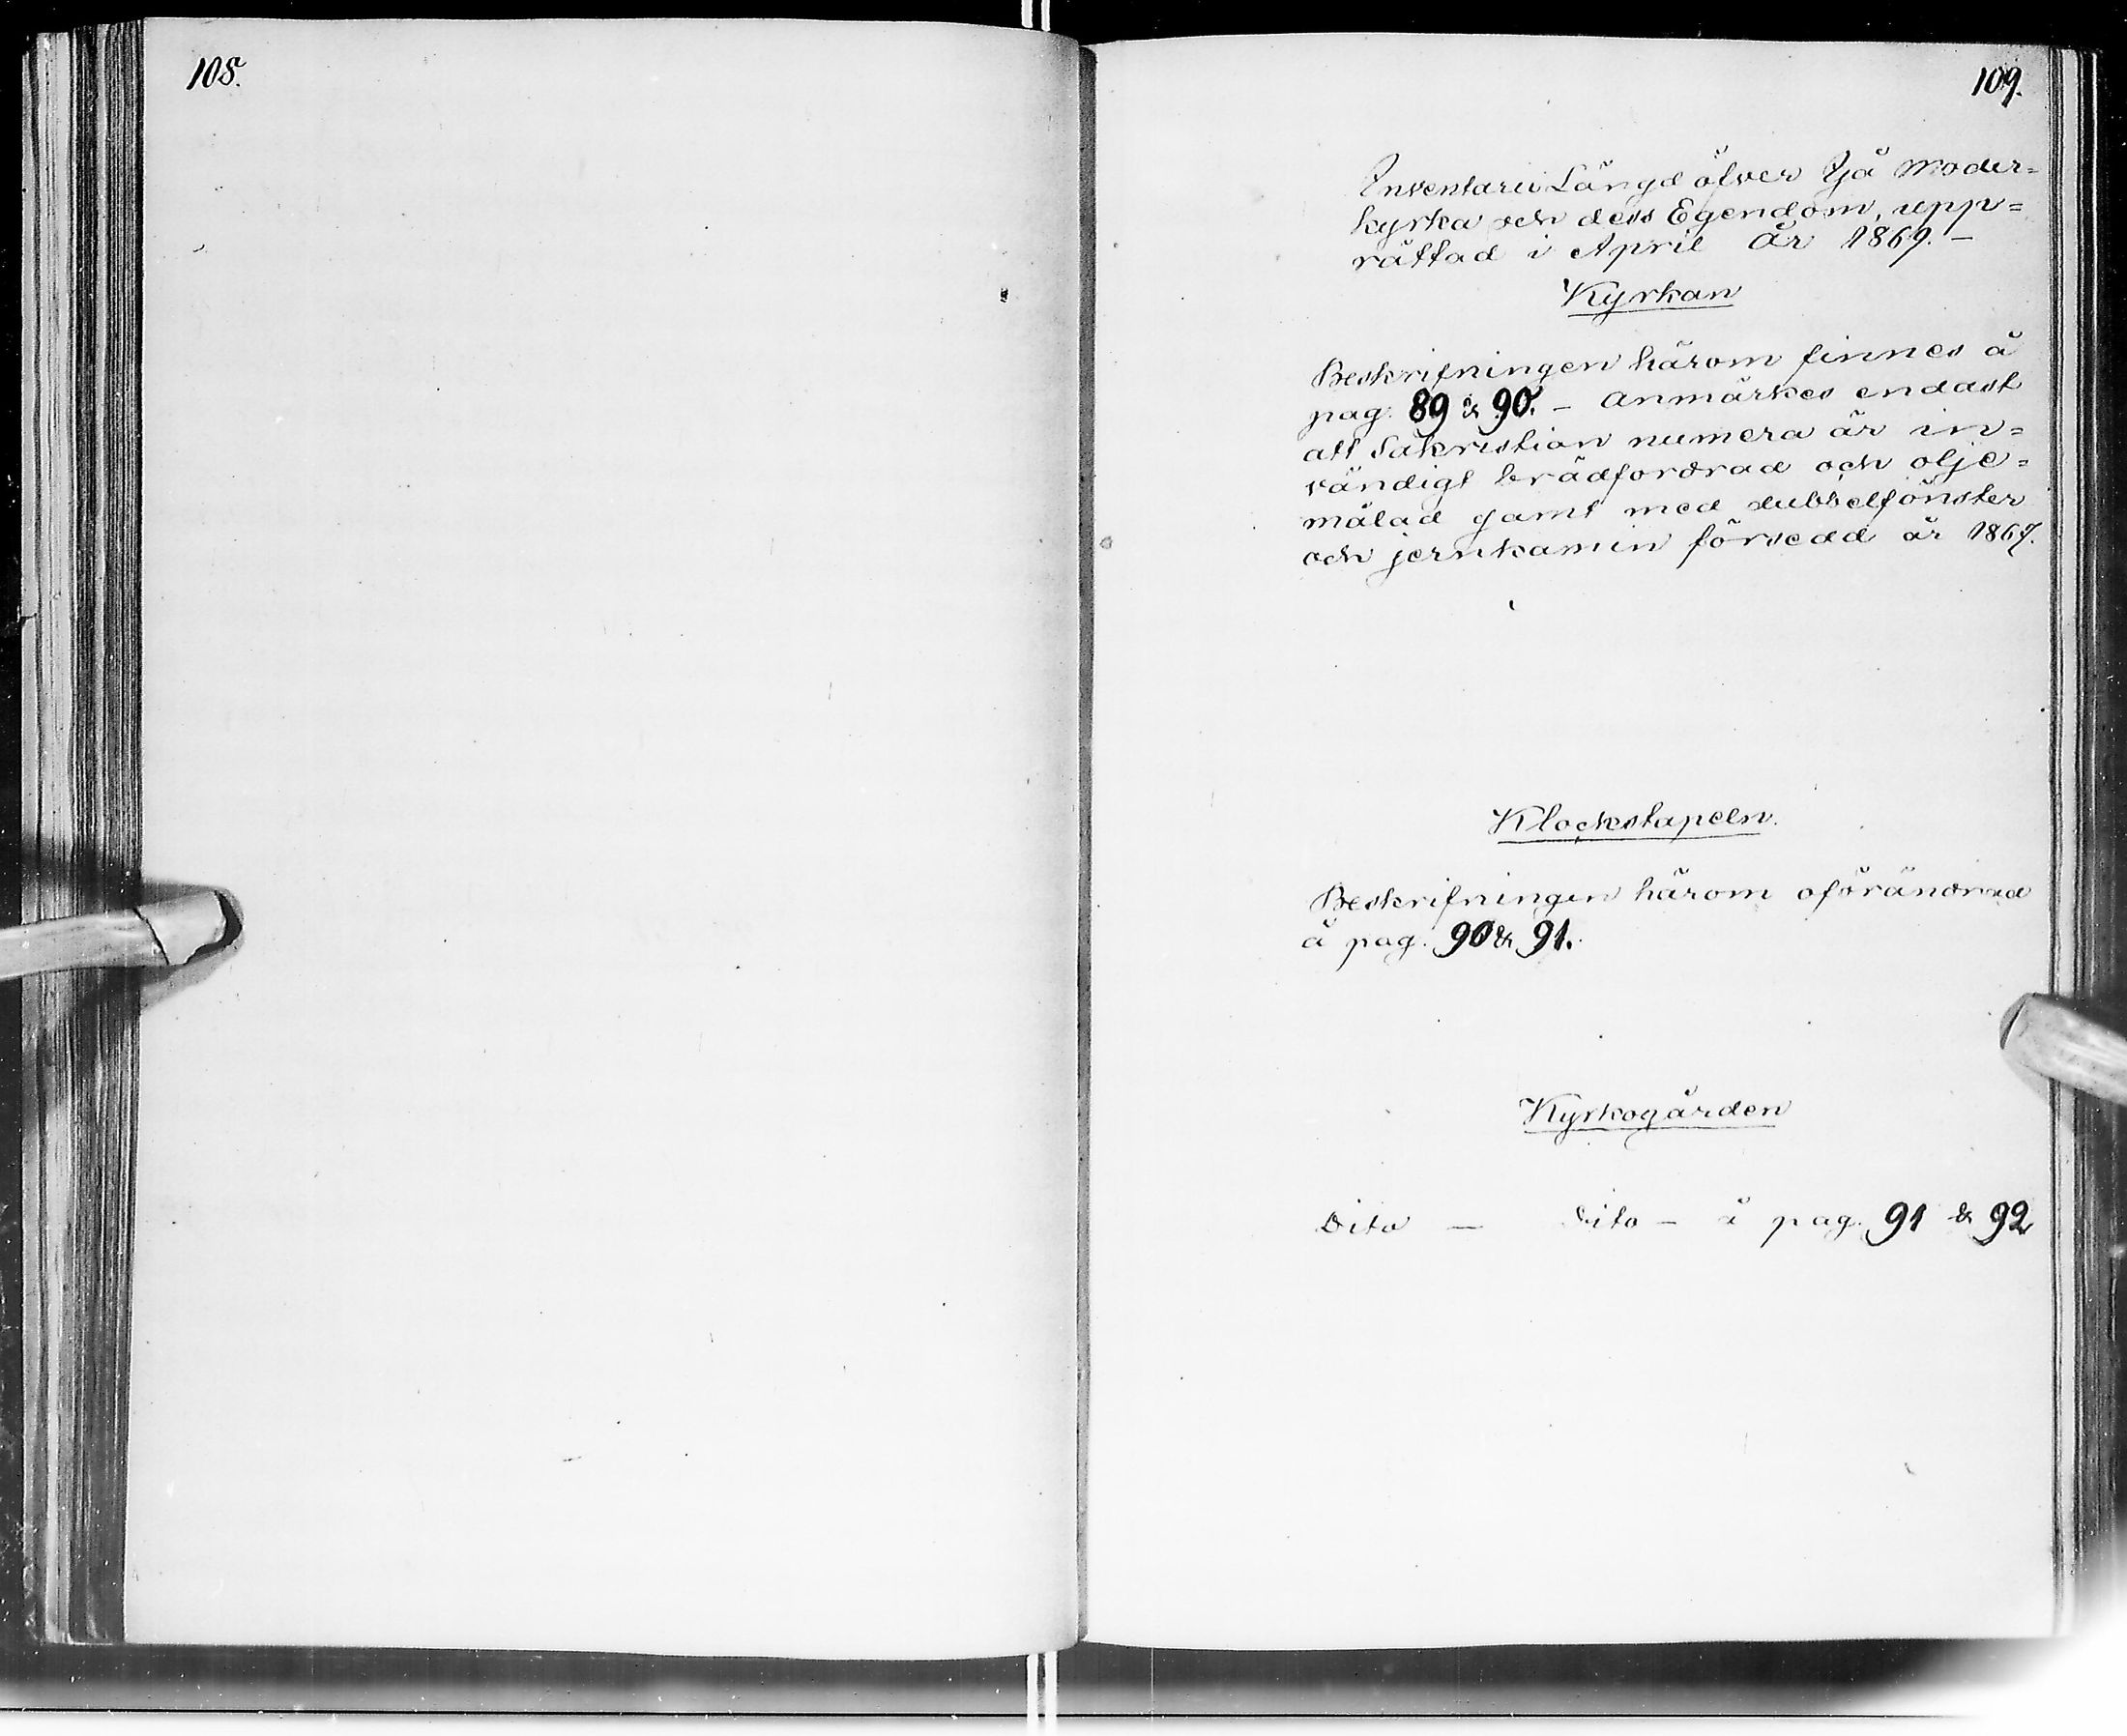 108.
109.
Inventarii Längd öfver Ijå Moder=
kyrka och dess Egendom, upp=
rättad i April År 1869. —
Kyrkan
Beskrifningen härom finnes å
pag. 89 & 90. — Anmärkes endast
att Sakristian numera är in=
vändigt brädfordrad och olje=
målad samt med dubbelfönster
och jernkamin försedd år 1867.
Klockstapeln.
Beskrifningen härom oförändrad
å pag. 90 & 91.
Kyrkogården
Dito — Dito — å pag. 91 & 92